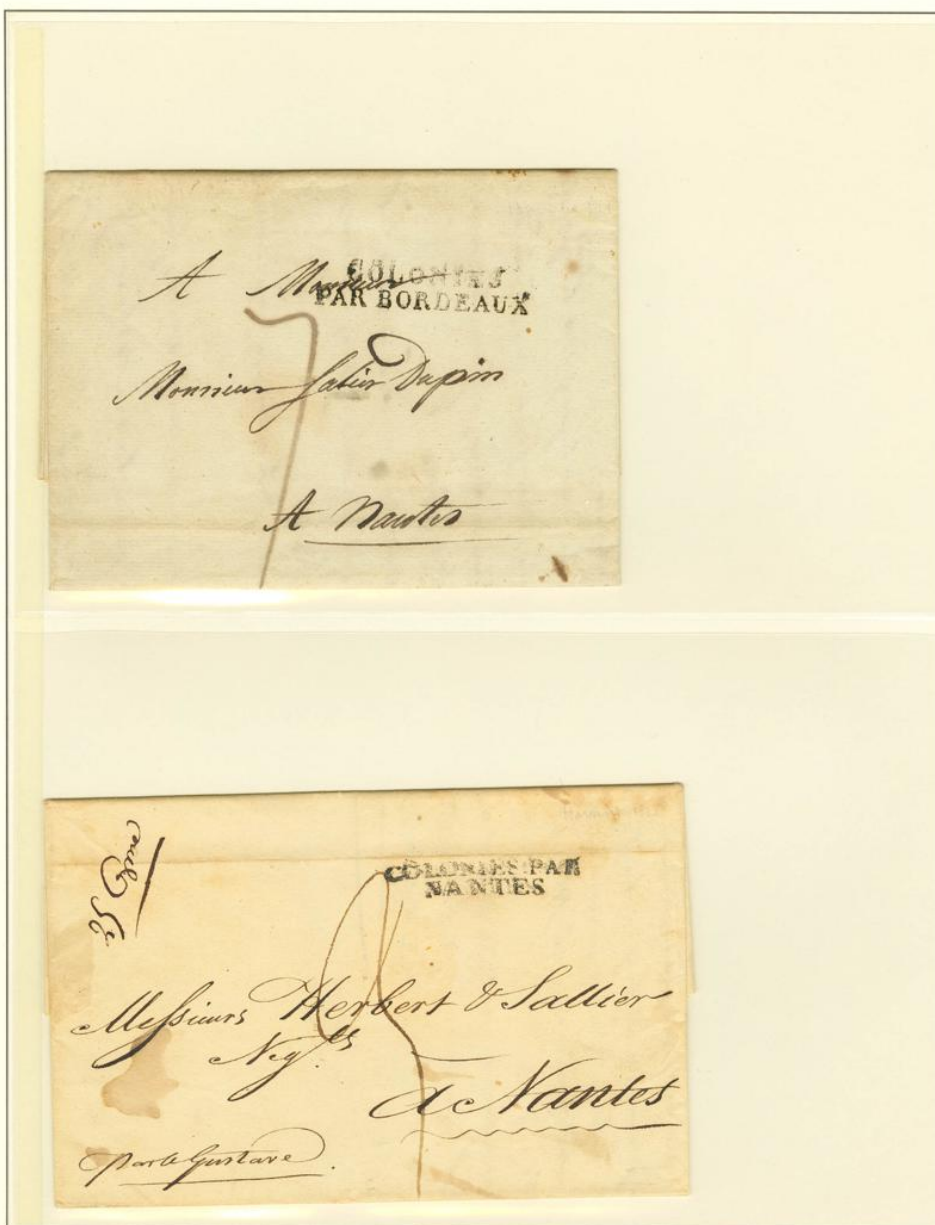 COLONIES
PAR BORDEAUX
A Monsieur
7
Monsieur Dupin
A Nantes
COLONIES PAR
NANTES
Messieurs Herbert & Sallier
Negts
a Nantes
par le Gustave